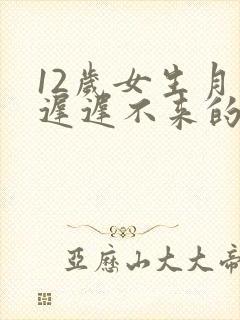 12歲女生月
遲遲不来的
亞歷山大大帝